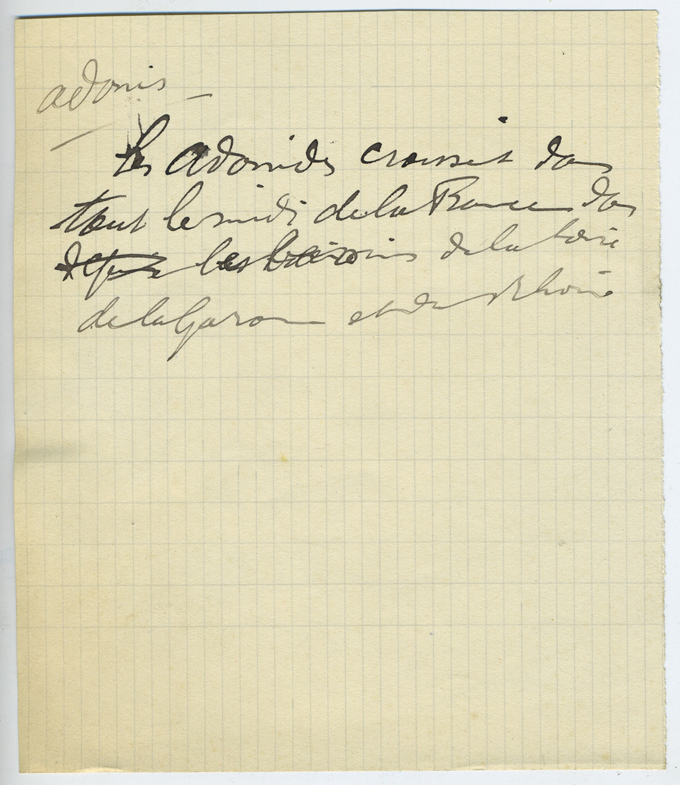 adonis
Les adonides croissent dans
tout le midi de la France dans
les bassins de la Loire
de la Garonne et du Rhône